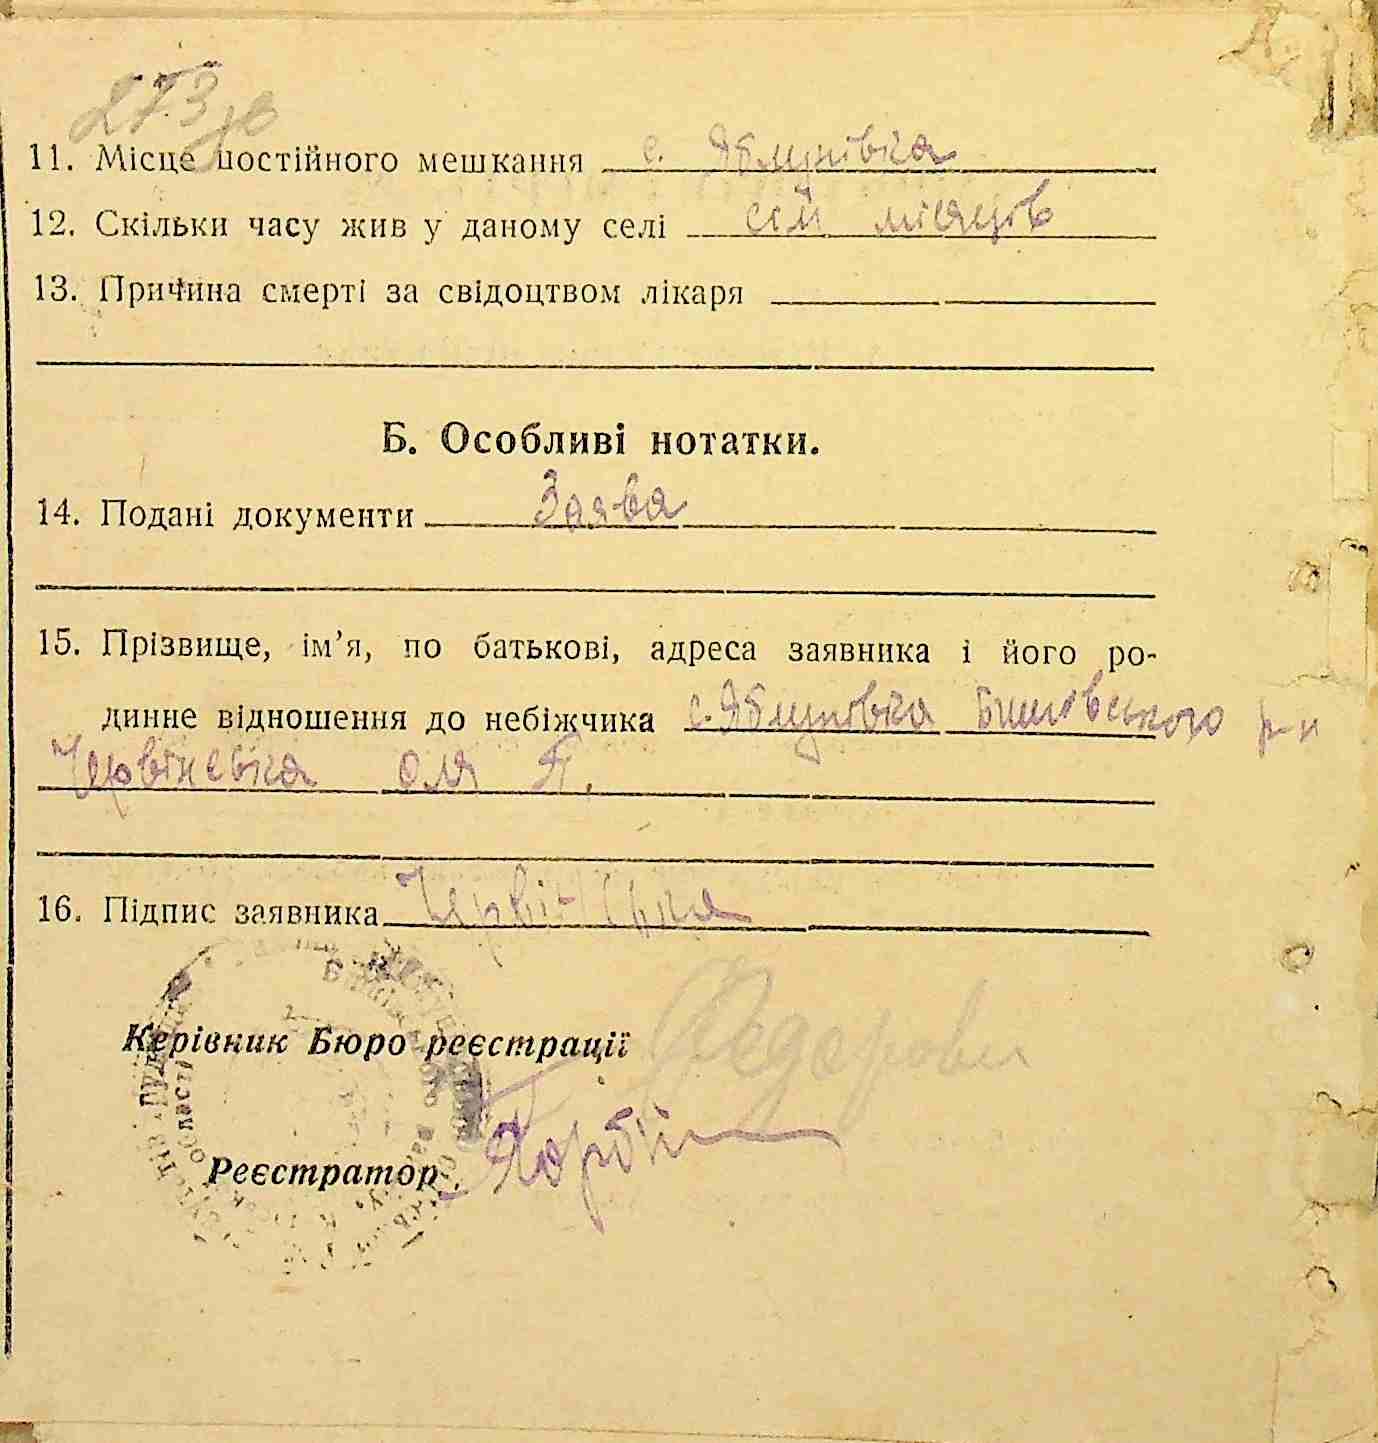 273 зв
11. Місце постійного мешкання с. Яблунівка
12. Скільки часу жив у даному селі сім місяців
13. Причина смерті за свідоцтвом лікаря
Б. Особливі нотатки.
14. Подані документи Заява
15. Прізвище, ім’я, по батькові, адреса заявника і його ро-
динне відношення до небіжчика с. Яблунівка Бишівського р-н
Червінська Оля П.
16. Підпис заявника
Керівник Бюро реєстрації
Реєстратор